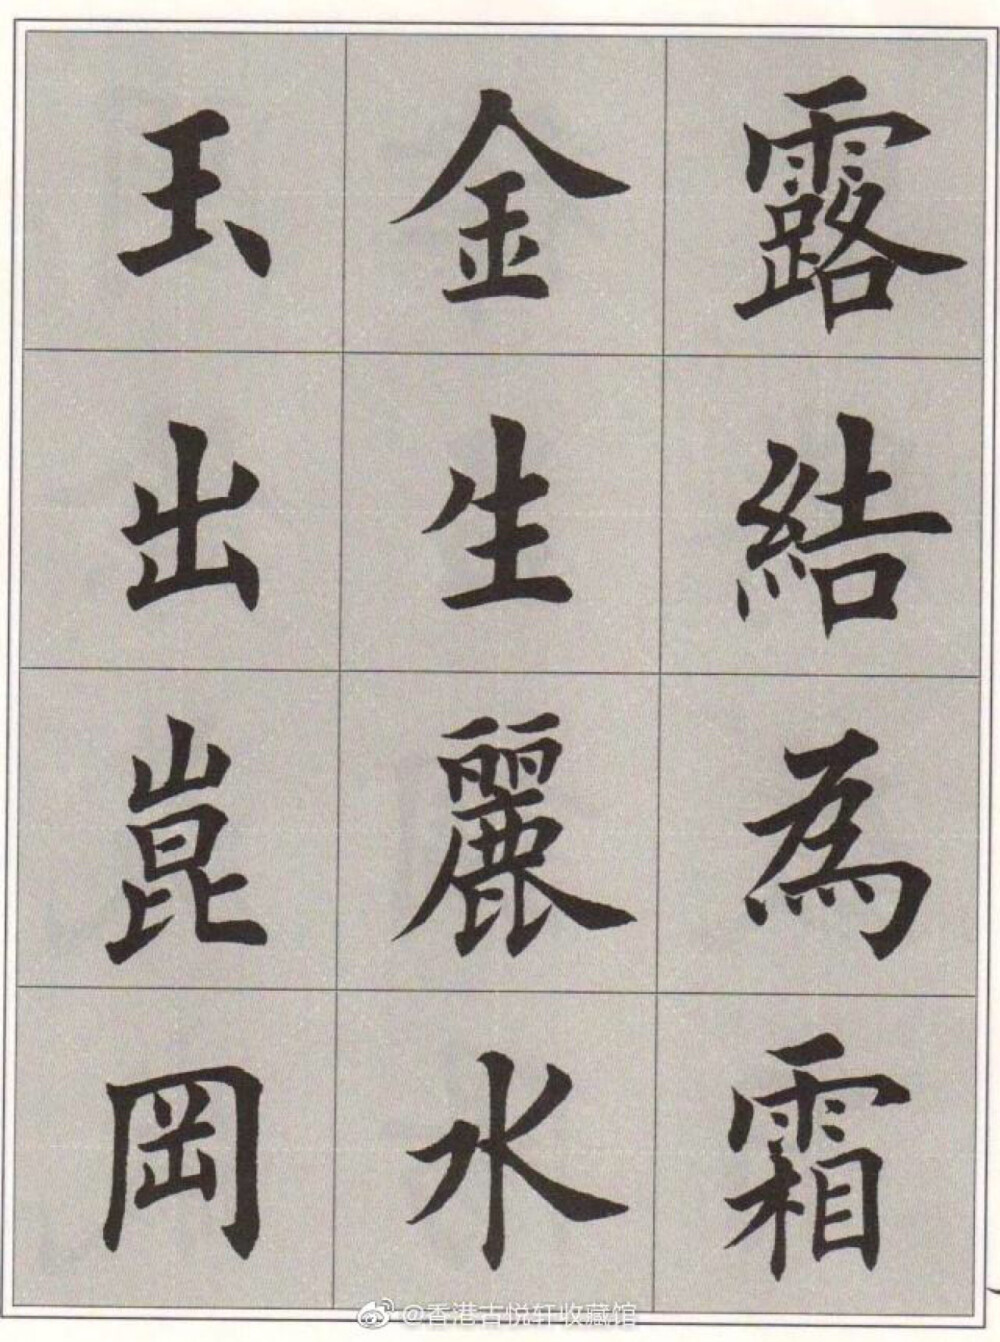 露結為霜
金生麗水
玉出崑岡
@香港古悦轩收藏馆